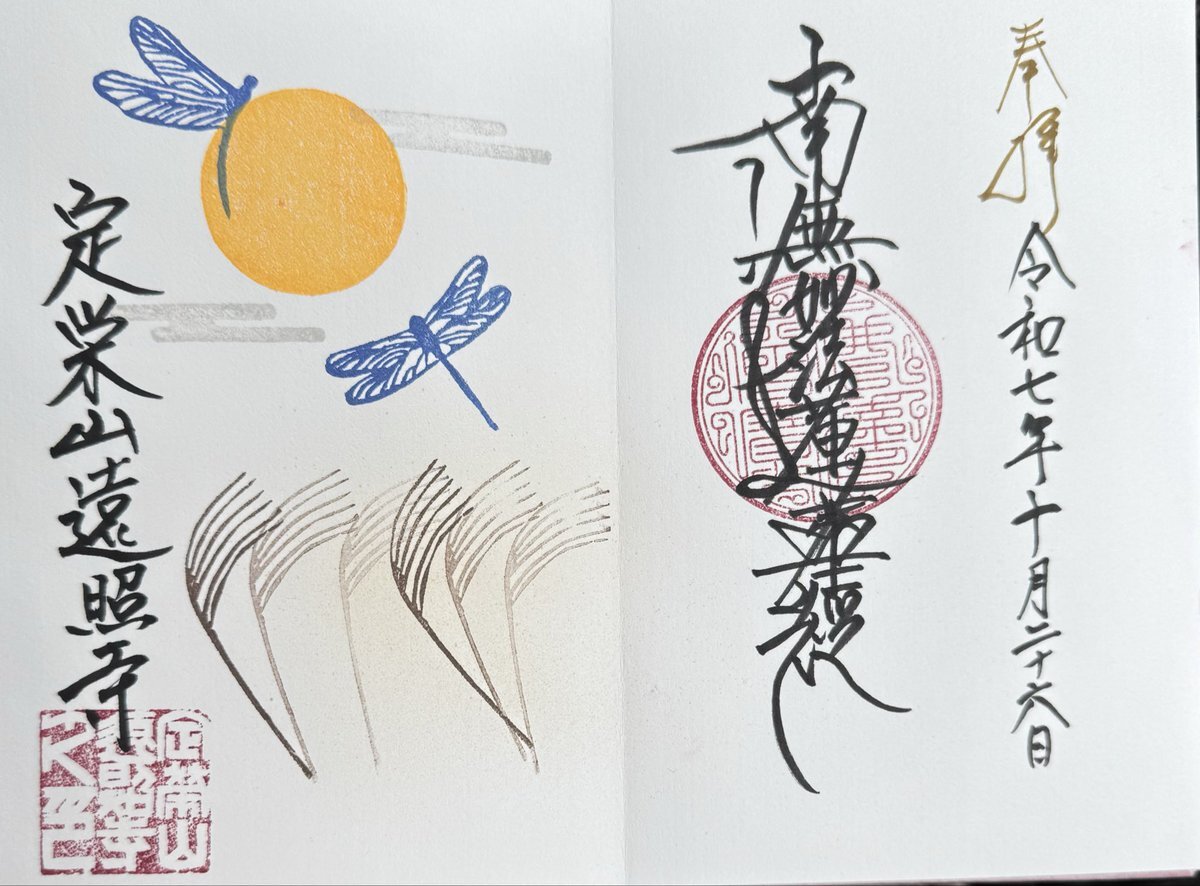 奉拝
令和七年十月二十六日
南無妙法蓮華經
定栄山遠照寺
定榮山